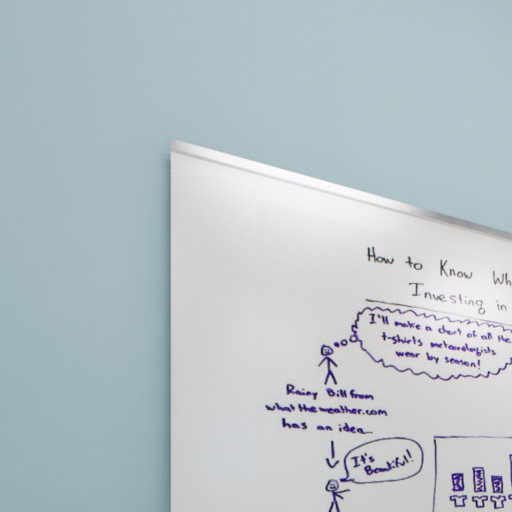 How to Know Wh
Investing in
I'll make a chart of all the
t-shirts meteorologists
wear by season!
Rainy Bill from
whattheweather.com
has an idea...
It's
Beautiful!